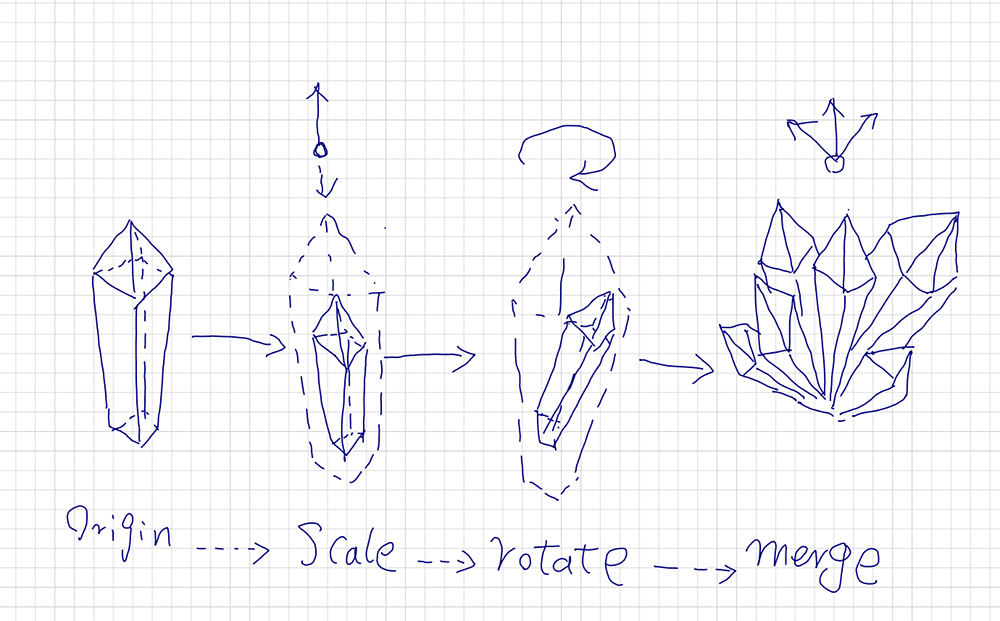 Origin ----> Scale ---> rotate ---> merge